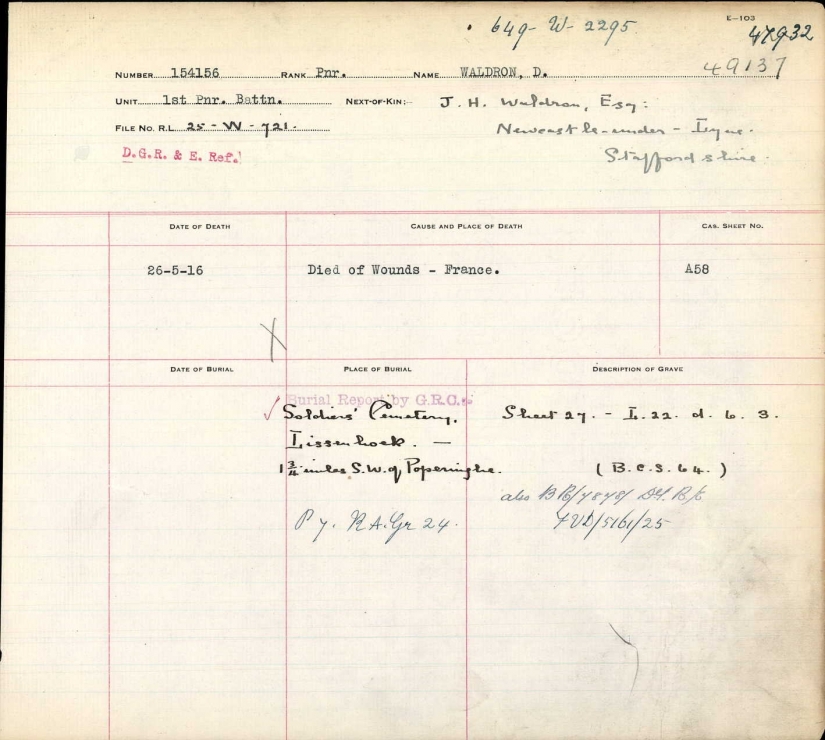 E-103
649-W-2295
47932
49137
NUMBER 154156 RANK Pnr. NAME WALDRON, D.
UNIT 1st Pnr. Battn. NEXT-OF-KIN:- J. H. Waldron, Esq:
FILE NO. R.L. 25-W-721. Newcastle-under-Lyne.
D.G.R. & E. Ref. Staffordshire.
DATE OF DEATH CAUSE AND PLACE OF DEATH CAS. SHEET NO.
26-5-16 Died of Wounds - France. A58
DATE OF BURIAL PLACE OF BURIAL DESCRIPTION OF GRAVE
Burial Report by G.R.C.
Soldiers' Cemetery, Sheet 27. - L. 22. d. 6. 3.
Lissenhoek. —
1 3/4 miles S.W. of Poperinghe. (B.C.S. 64.)
also
P 7. R.A. Gr 24.